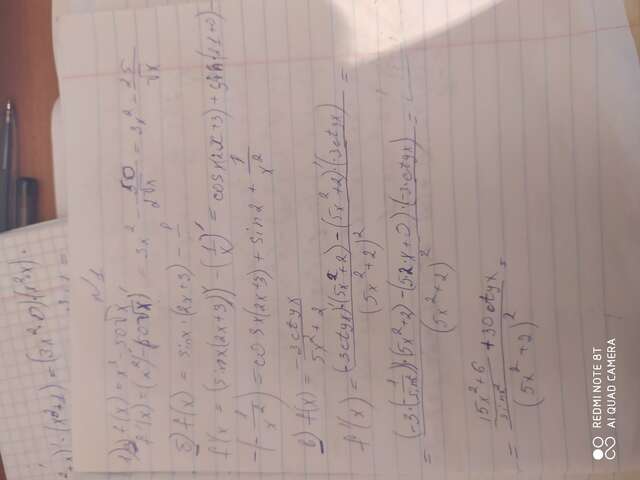 N 1
1) a) f(x) = x³ - 50√x
f'(x) = (x³)' - (50√x)' = 3x² - 50/2√x = 3x² - 25/√x
б) f(x) = sinx · (2x+3) - 1/x
f'x = (sinx(2x+3))' - (1/x)' = cosx(2x+3) + sinx(2·1+0) -
- (-1/x²) = cosx(2x+3) + sin2 + 1/x²
в) f(x) = -3ctgx / 5x²+2
f'(x) = (-3ctgx)'(5x²+2) - (5x²+2)'(-3ctgx) / (5x²+2)² =
= (-3·(-1/sin²x))(5x²+2) - (5·2·x+0)·(-3·ctgx) / (5x²+2)² =
= 15x²+6 / sin²x + 30ctgx / (5x²+2)² =
(x²+2) = (3x²·0)·(x³x)·
REDMI NOTE 8T
AI QUAD CAMERA